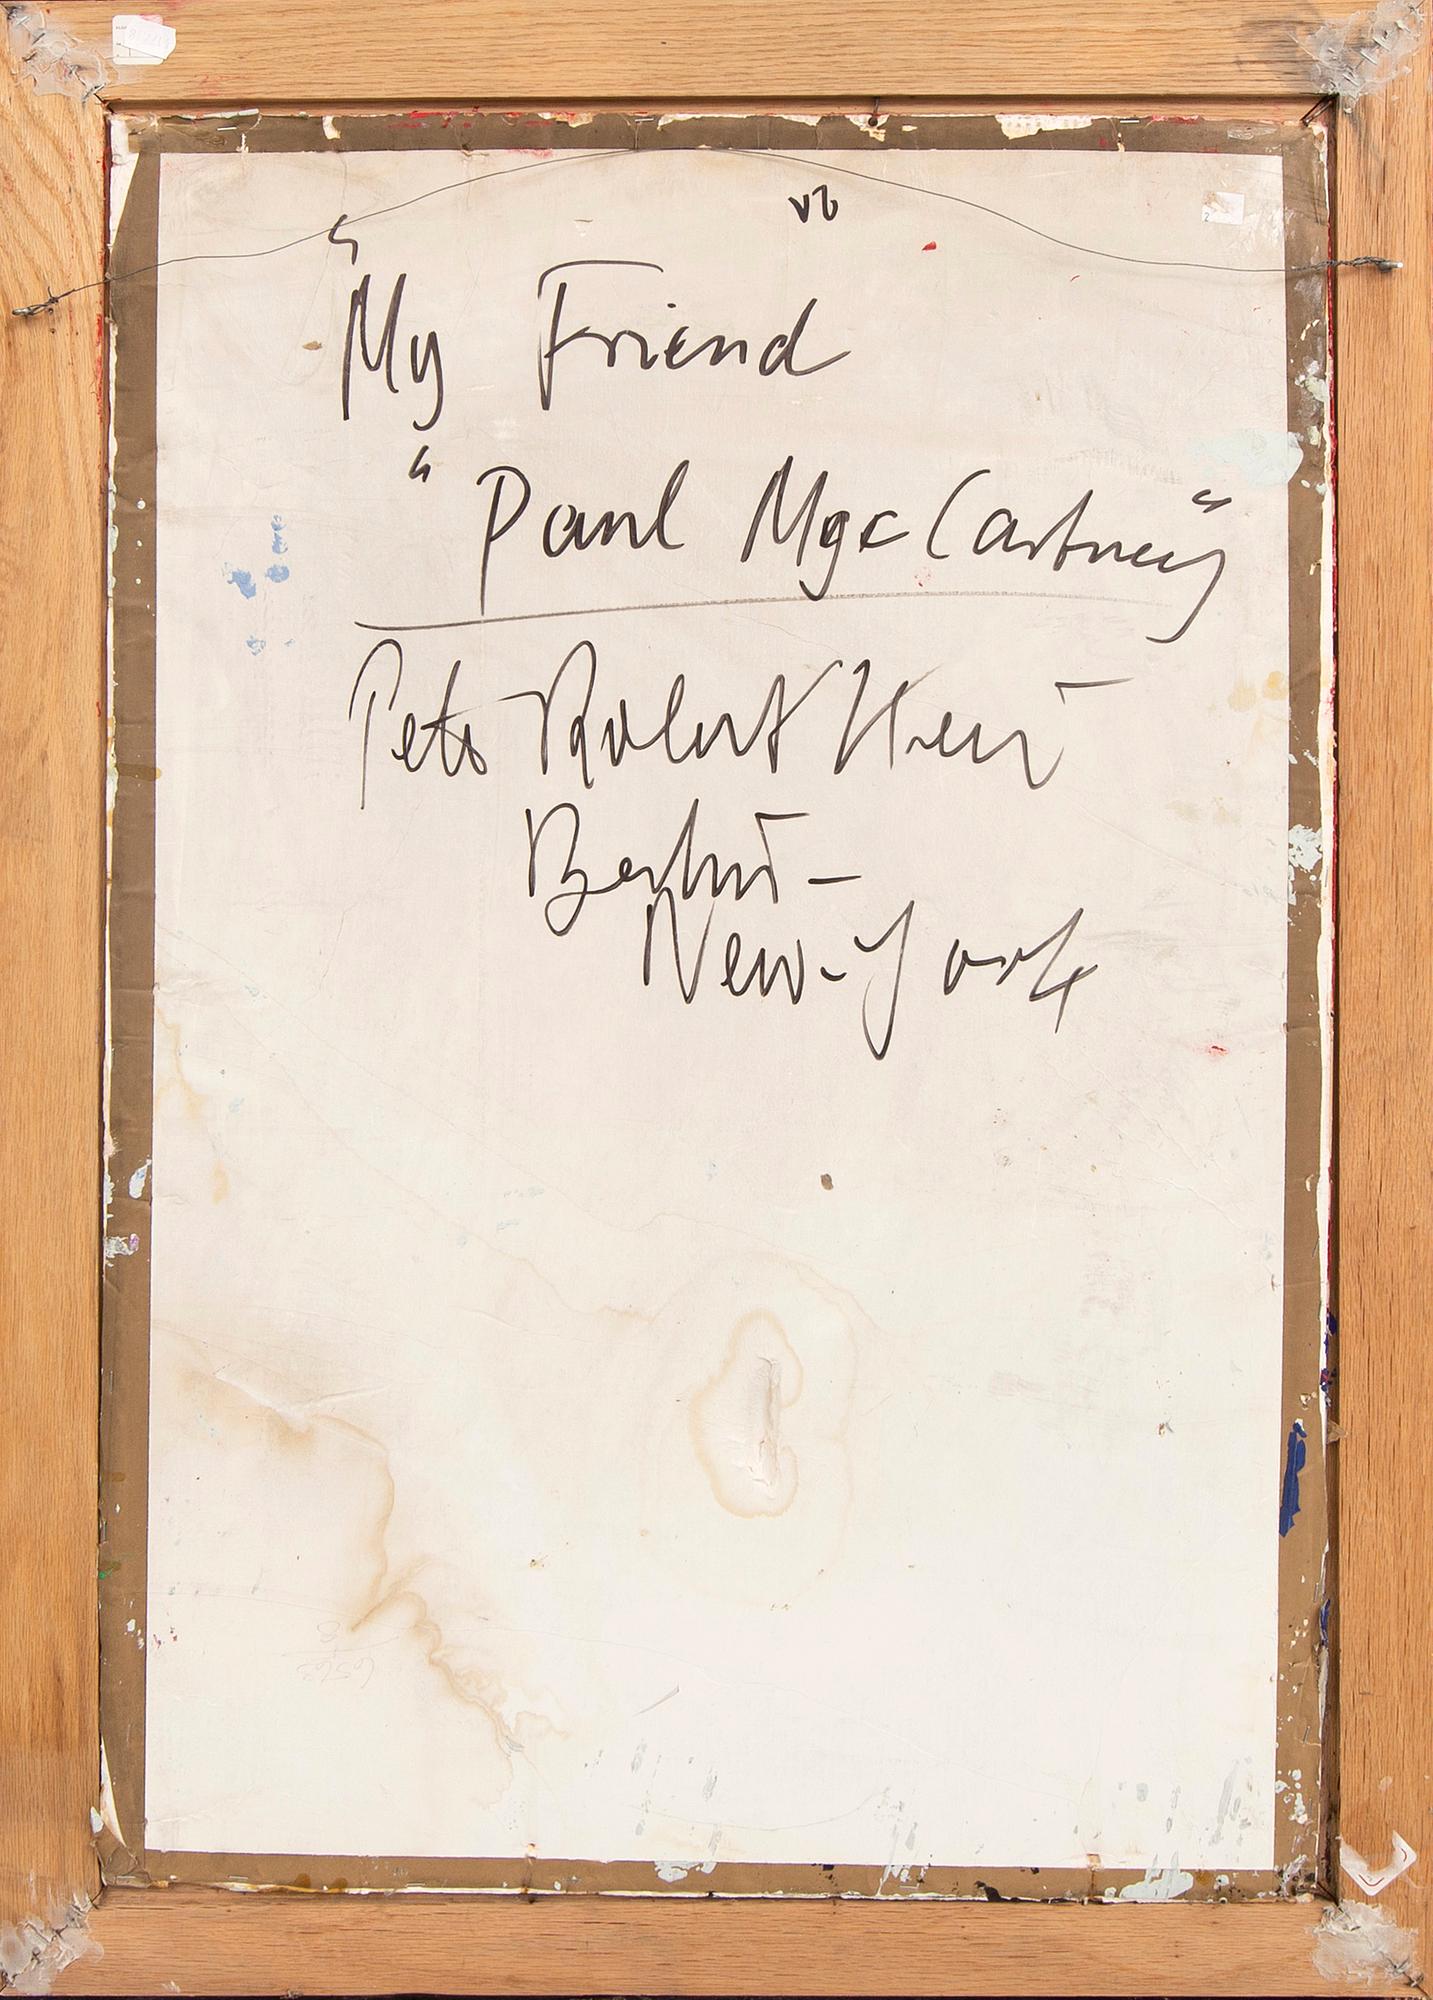 "My Friend
"Paul MgcCartney"
Peter Robert Keil
Berlin -
New-York